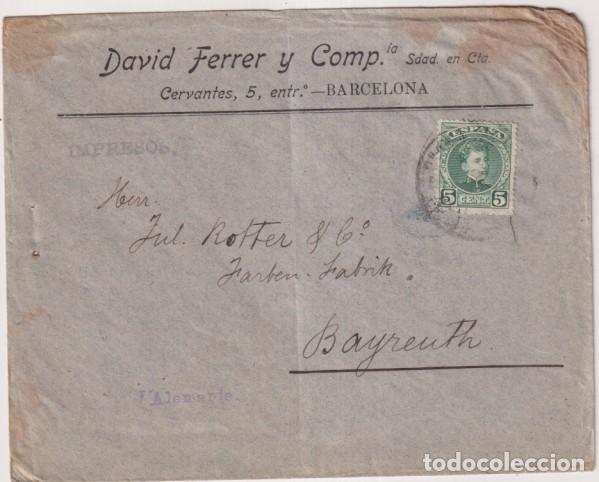 David Ferrer y Comp.ía Sdad. en Cta.
Cervantes, 5, entr.º—BARCELONA
IMPRESOS.
ESPAÑA
5 CENTS 5
Herrn.
Jul. Rotter & Co
Farben-Fabrik.
Bayreuth.
Alemania.
todocoleccion